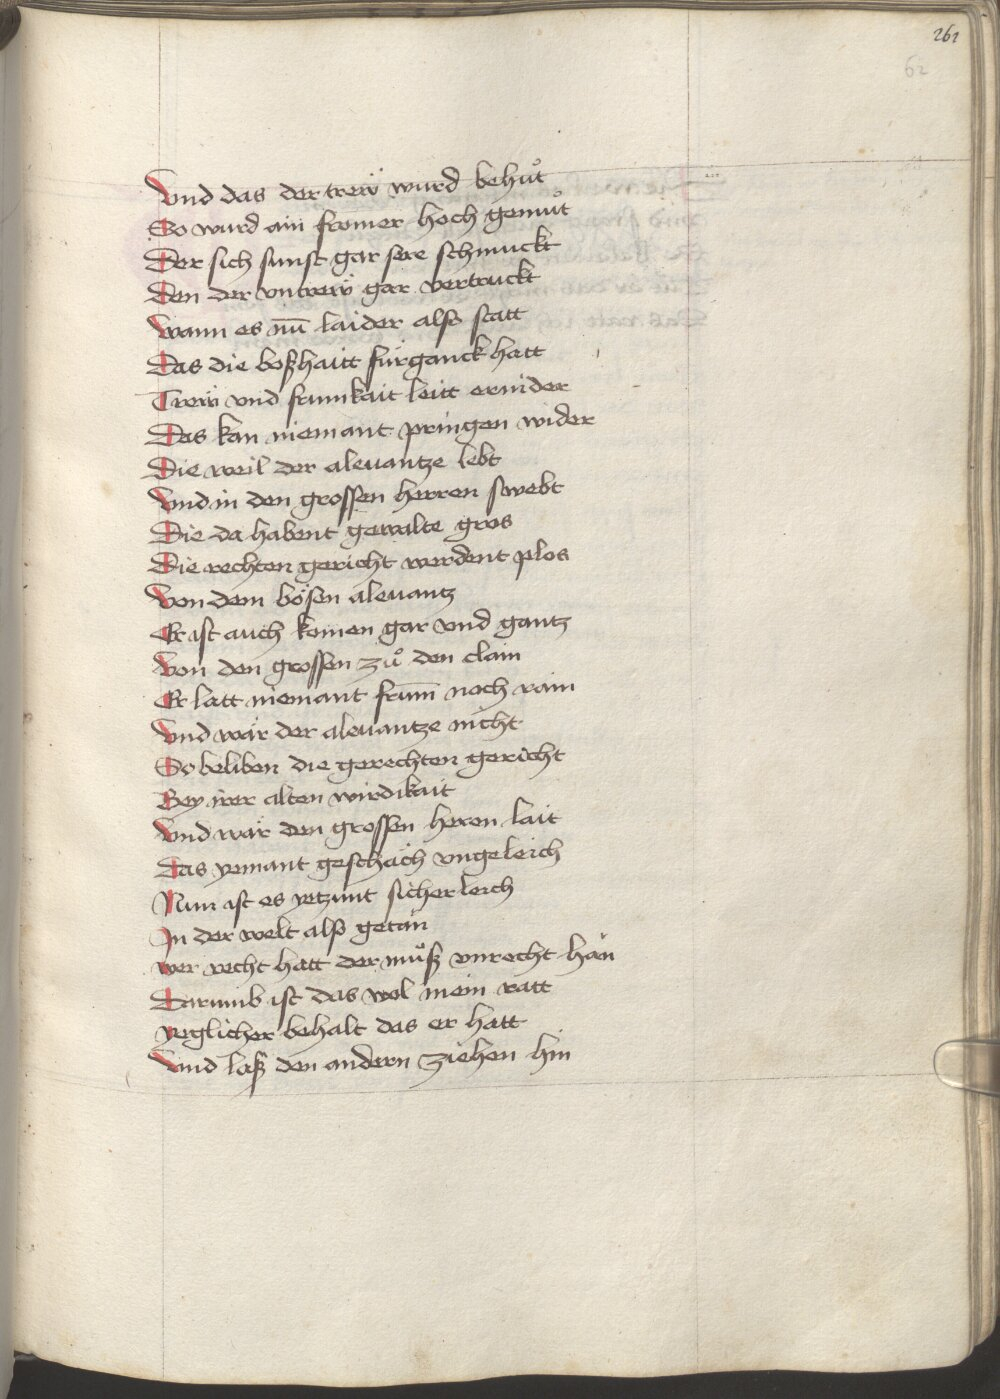 261
62
Vnd das der treẅ wurd behuͦt
So wurd ain fromer hoch gemuͦt
Der sich sunst gar sere schmuckt
Den der vntreẅ gar vertruckt
Wann es nū laider also statt
Das die boßhaitt fürganck hatt
Treẅ vnd frumkait leitt ernider
Das kan niemant pringen wider
Die weil der alevantze lebt
Vnd in den grossen herren swebt
Die da habent gewalte gros
Die rechten gericht werdent plos
Von dem bösen alevantz
Er ist auch komen gar vnd gantz
Von den grossen zuͦ den clain
Er latt niemant frum̄ noch rain
Vnd wär der alevantze nicht
So beliben die gerechten gericht
Bey irer alten wirdikait
Vnd wär den grossen heren lait
Das yemant geschäch vngeleich
Nun ist es yetzunt sicherleich
In der welt also getän
Wer recht hatt der muͦß vnrecht hän
Darumb ist das wol mein ratt
Yeglicher behalt das er hatt
Vnd laß den andern ziehen hin